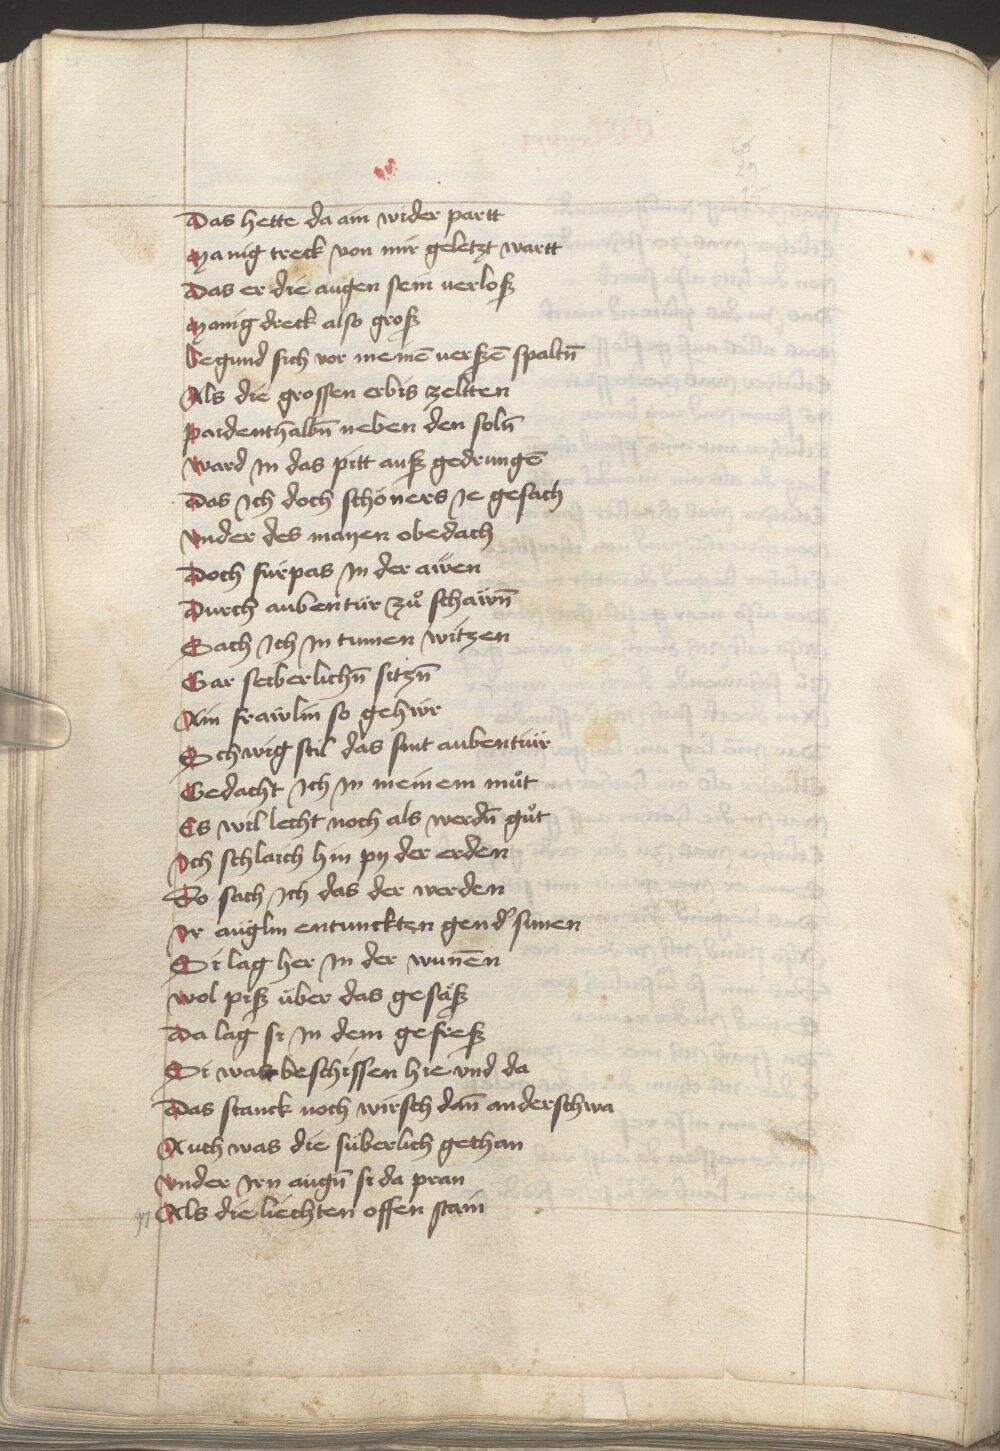 Das hette da ain wider partt
Manig treck von mir geletzt wartt
Das er die augen sein verlosz
Manig dreck also grosz
Begund sich vor meinē verszē spaltn̄
Als die grossen erbis zeltten
Paidenthalbn̄ neben den soln̄
Ward In das pett ausz gedrungē
Das Ich doch schöners Ie gesach
Vnder des mayen obedach
Doch fürpas In der awen
Durch aubentür zuͦ schawn̄
Sach Ich In tumen witzen
Gar seiberlichn̄ sitzn̄
Ain frawlin so gehwr
Schwig stil das sint aubentüir
Gedacht Ich In meinem muͦt
Es wil lecht noch als werdn̄ guͦt
Ich schlaich hin py der erden
So sach Ich das der werden
Ir aüglin entunckten gen d' sunen
Si lag her In der wunēn
Wol pisz über das gesäsz
Da lag si In dem gefresz
Si was beschissen hie vnd da
Das stanck noch wirsch dan̄ anderschwa
Auch was die süberlich gethan
Vnder Irn augn̄ si da pran
Als die liechten offen stain